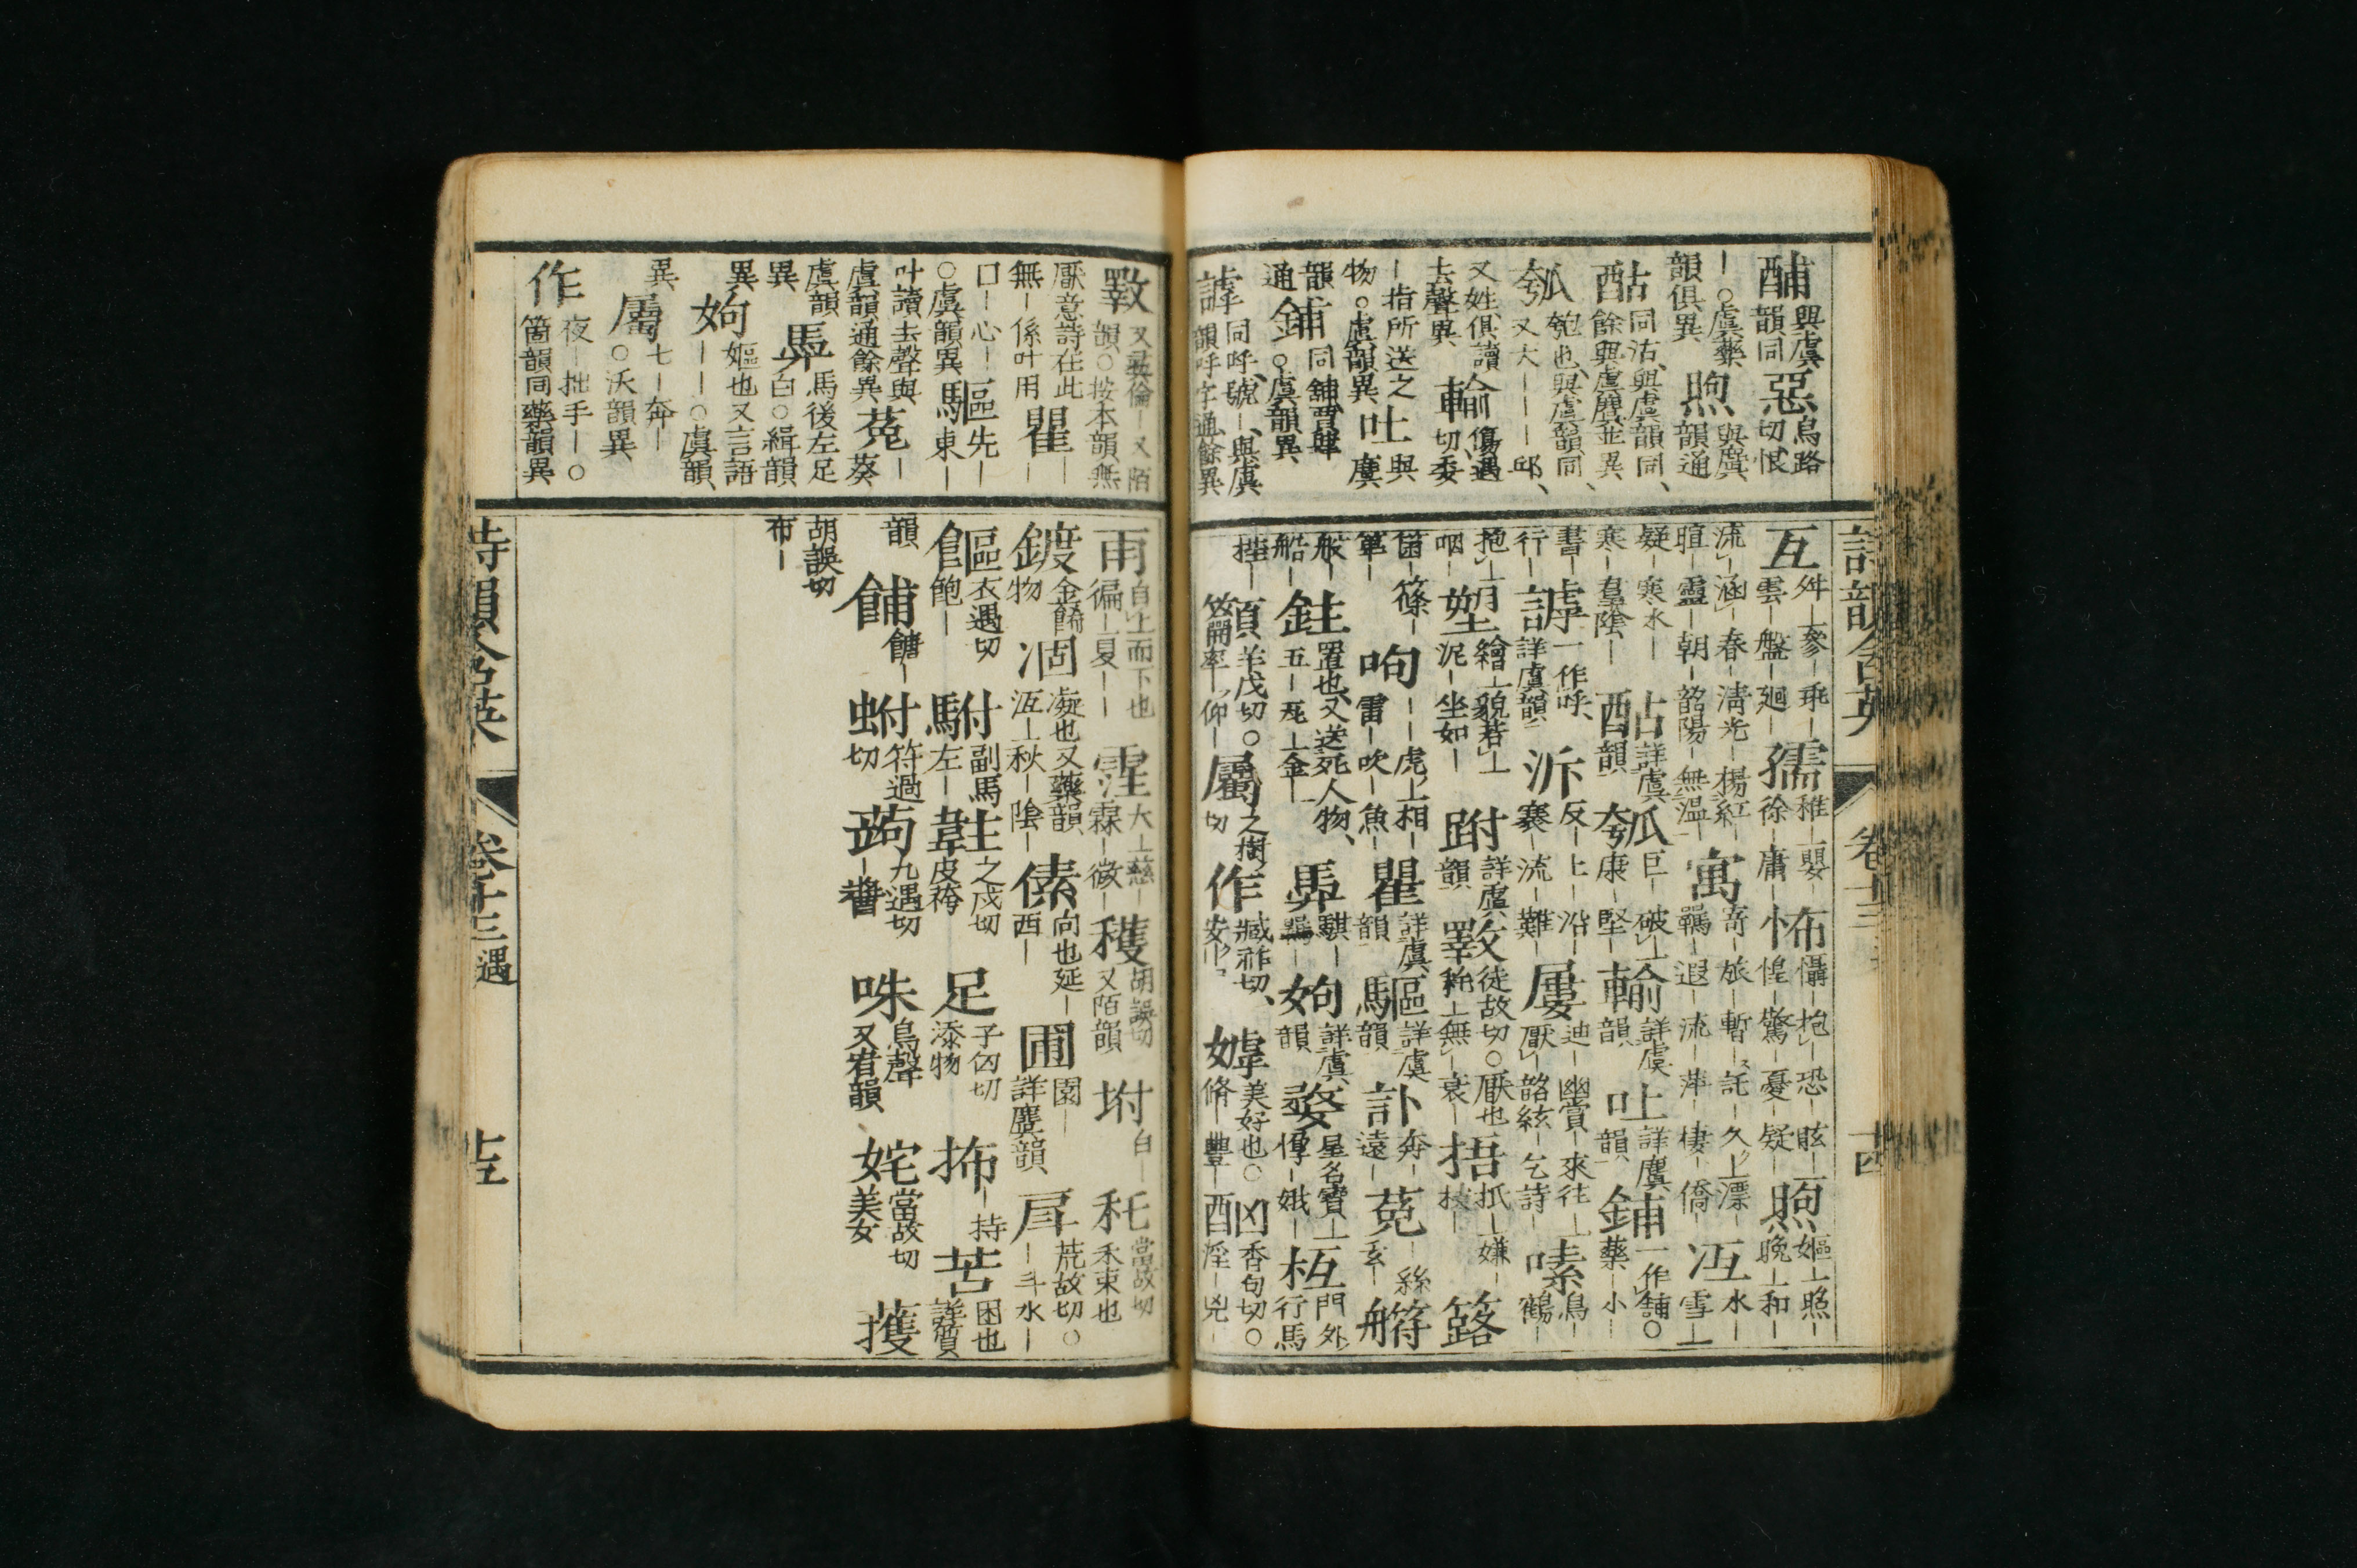 酺 與虞韻同 惡 烏路切、恨
｜○虞藥韻俱異 煦 與虞韻通
酤 同沽、與虞韻同、餘與虞麌並異
瓠 匏也、與虞韻同、又大｜｜｜邱、
又姓、俱讀去聲異 輸 傷遇切、委
｜指所送之物○虞韻異 吐 與麌
韻通 鋪 同舖賈肆○虞韻異
謼 同呼、號｜、與虞韻呼字通餘異
詩韻含英 卷十三 十四
互 舛｜參｜乖｜雲｜盤｜廻｜ 孺 稚｜嬰｜徐｜庸｜ 怖 懾｜抱｜恐｜眩｜惶｜驚｜憂｜疑｜ 煦 嫗｜照｜晚｜和｜
流｜涵｜春｜淸光｜楊紅｜暄｜靈｜朝｜韶陽｜無溫｜ 寓 寄｜旅｜暫｜託｜久｜漂｜羈｜遐｜流｜萍｜棲｜僑｜ 冱 水｜雪｜
疑｜寒水｜寒｜羣陰｜ 酤 詳虞韻 瓠 巨｜破｜康｜堅｜ 輸 詳虞韻 吐 詳麌韻 鋪 一作舖○藥｜小｜
書｜行｜ 謼 一作呼、詳虞韻 泝 反｜上｜沿｜褰｜流｜難｜ 屢 迪｜幽賞｜來往｜厭｜韶絃｜乞詩｜ 嗉 鳥｜鶴｜
抱｜月｜繪｜貌若｜咽｜ 塑 泥｜坐如｜ 跗 詳虞韻 斁 徒故切○厭也 耗｜無｜衰｜ 捂 抵｜嫌｜挾｜ 簬
箘｜篠｜簞｜ 呴 ｜｜虎｜相｜雷｜吹｜魚｜ 瞿 詳虞韻 驅 詳虞韻 訃 奔｜遠｜ 菟 ｜絲玄｜
般｜船｜ 鉒 置也、又送死人物、五｜死｜金｜ 馵 騏｜ 姁 詳虞韻 婺 星名寶｜傳｜娥｜ 枑 門外行馬
籲 羊戍切○仰｜ 屬 之樹切 作 臧祚切、 嫭 美好也○脩｜豐｜ 酗 香句切○淫｜兇｜
斁 又彝倫｜又陌韻○按本韻無
厭意詩在此無｜係叶用 瞿 ｜｜
口｜心｜ 驅 先｜東｜
○虞韻異
叶讀去聲與虞韻通餘異 菟 ｜葵
虞韻異 馵 馬後左足白○緝韻
異 姁 嫗也又言語｜｜○虞韻、
異 屬 七｜奔｜○沃韻異
作 夜｜拙手｜○箇韻同藥韻異
雨 自上而下也 徧｜夏｜｜ 霔 大｜慈｜霖｜微｜ 穫 胡誤切又陌韻 坿 白｜ 秅 當故切禾束也
鍍 金餙物 涸 凝也又藥韻 冱｜秋｜陰｜ 傃 向也延｜西｜ 圃 園｜詳麌韻 戽 荒故切○｜斗水｜
饇 衣遇切飽｜ 駙 副馬左｜ 䪒 之戍切皮袴 足 子句切添物 抪 ｜持 苦 困也詳麌
韻 餔 餹｜ 蚹 符遇切 蒟 九遇切｜醬 咮 鳥聲又宥韻 妵 當故切美女 擭
胡誤切布｜
詩韻含英 卷十三 遇 十五